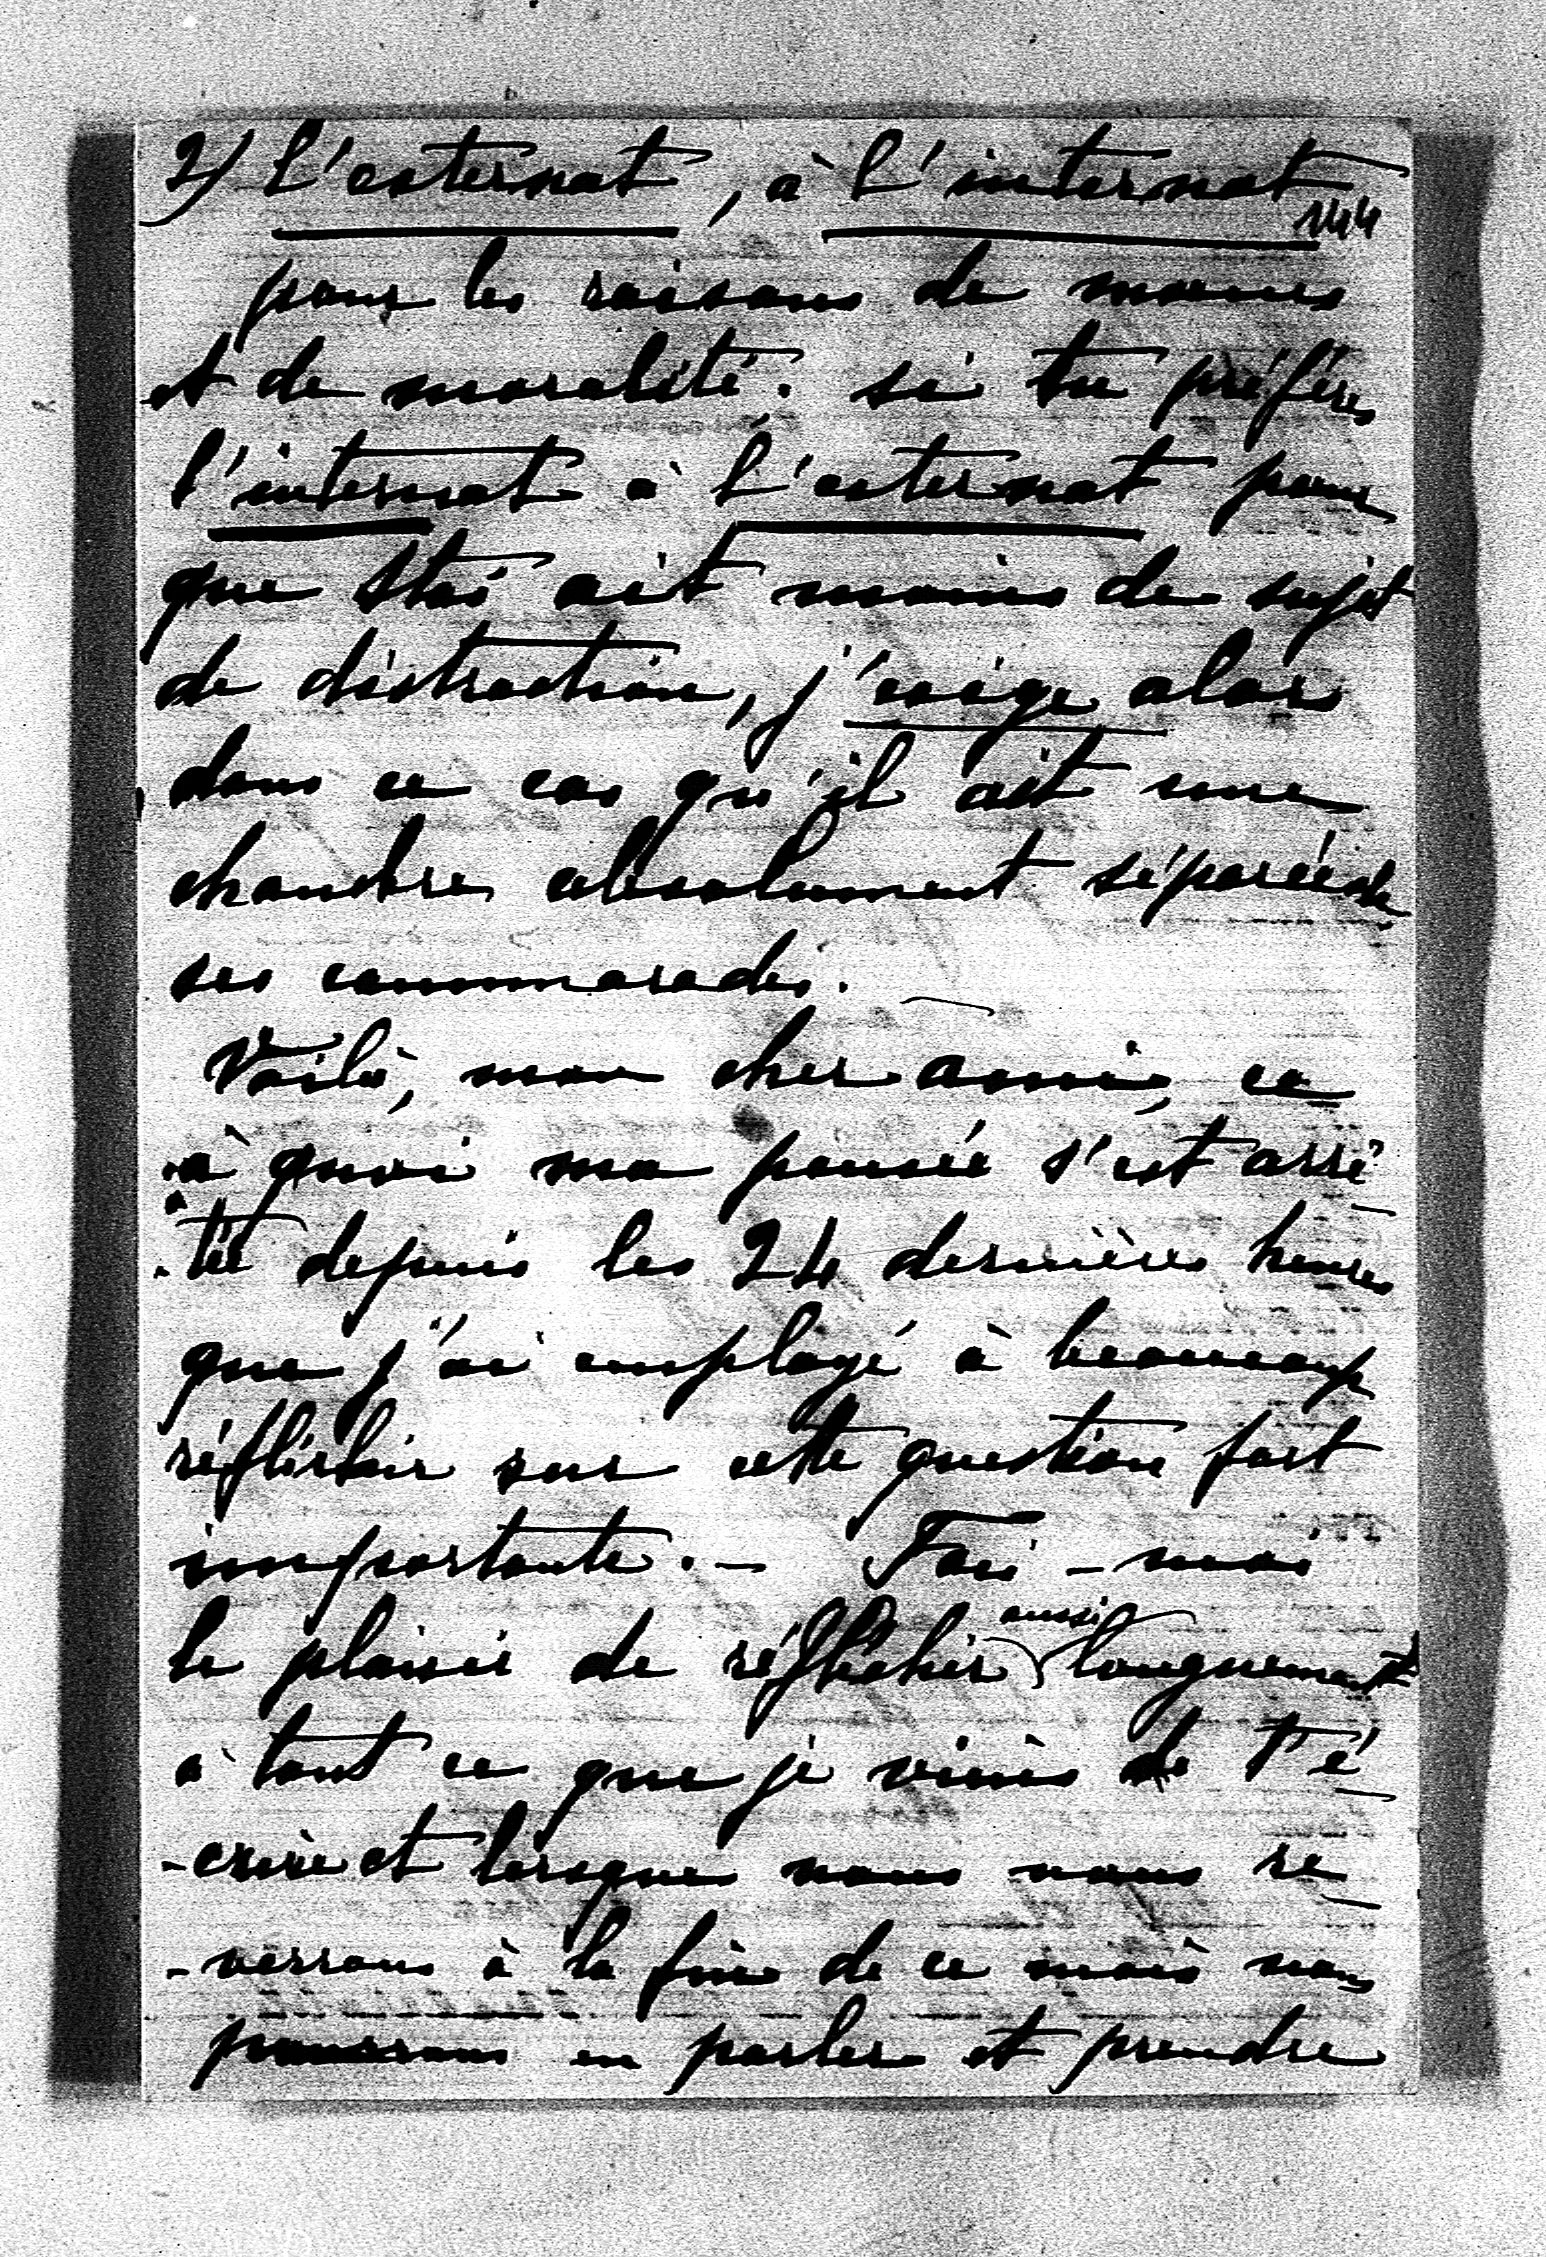 2) L'externat, à l'internat
144
pour les raisons de moeurs
et de moralité. si tu préfères
l'internat à l'externat pour
que Stoï ait moins de sujet
de distraction, j'exige alors
dans ce cas qu'il ait une
chambre absolument séparée de
ses cammarades.
Voilà, mon cher ami, ce
à quoi ma pensée s'est arrê-
-tée depuis les 24 dernières heures
que j'ai employé à beaucoup
réfléchir sur cette question fort
importante. — Fais-moi
le plaisir de réfléchir aussi longuement
à tout ce que je viens de t'é-
-crire et lorsque nous nous re-
-verrons à la fin de ce mois nous
pourrons en parler et prendre